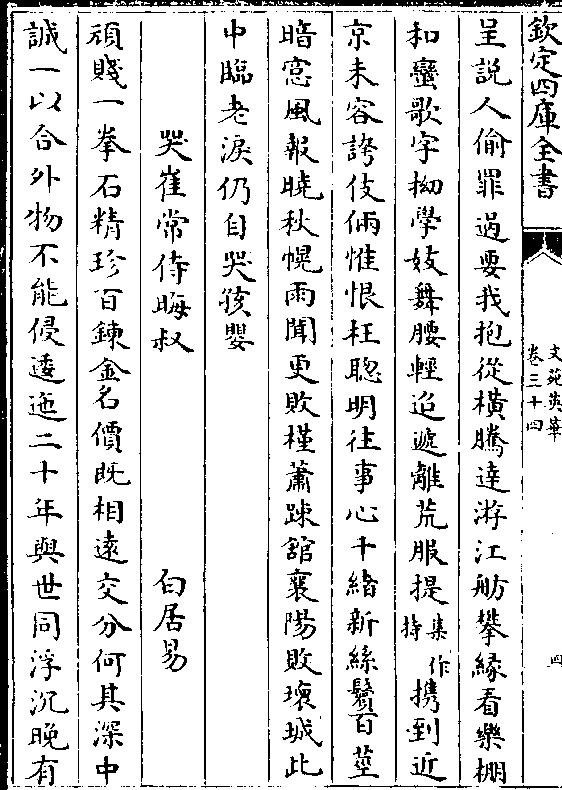 欽定四庫全書
文苑英華
卷三十四
四
呈説人偷罪過要我抱從横騰達游江舫攀緣看樂棚
和蠻歌字拗學妓舞腰輕迢遞離荒服提集作持攜到近
京未容誇伎倆惟恨枉聰明往事心千緒新絲鬢百莖
暗窓風報曉秋幌雨聞更敗槿蕭踈舘襄陽敗壞城此
中臨老淚仍自哭孩嬰
哭崔常侍晦叔 白居易
頑賤一拳石精珍百鍊金名價既相遠交分何其深中
誠一以合外物不能侵逶迤二十年與世同浮沉晚有